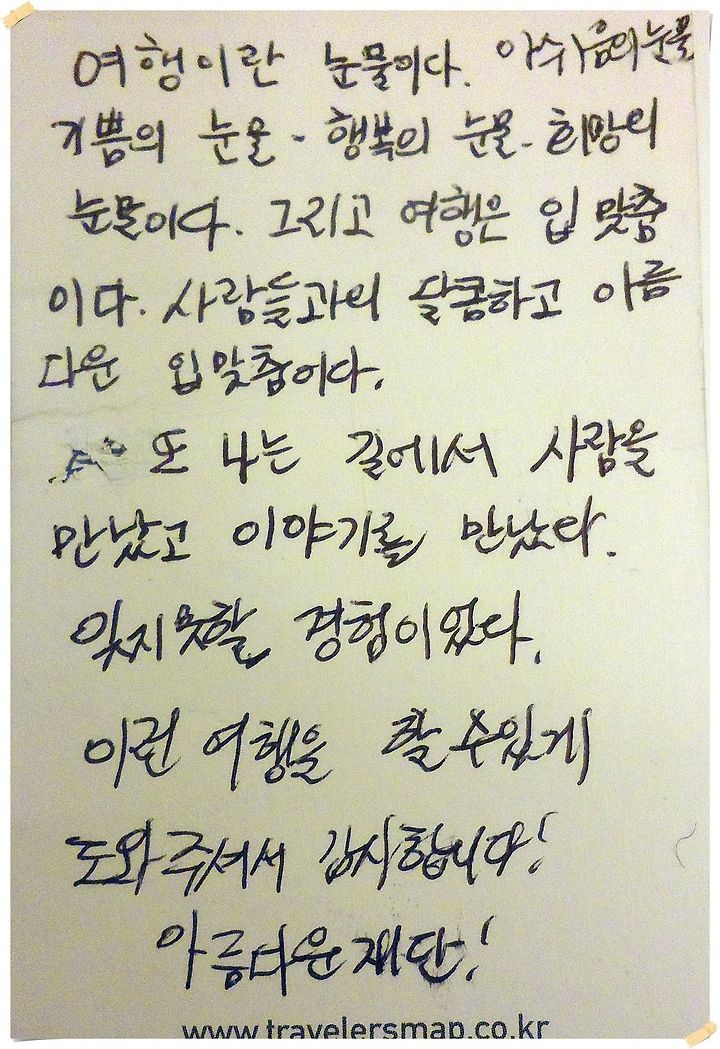 여행이란 눈물이다. 아쉬움의 눈물
기쁨의 눈물 - 행복의 눈물 - 희망의
눈물이다. 그리고 여행은 입맞춤
이다. 사람들과의 달콤하고 아름
다운 입맞춤이다.
또 나는 길에서 사람을
만났고 이야기를 만났다.
잊지못할 경험이었다.
이런 여행을 할 수 있게
도와주셔서 감사합니다!
아름다운재단!
www.travelersmap.co.kr